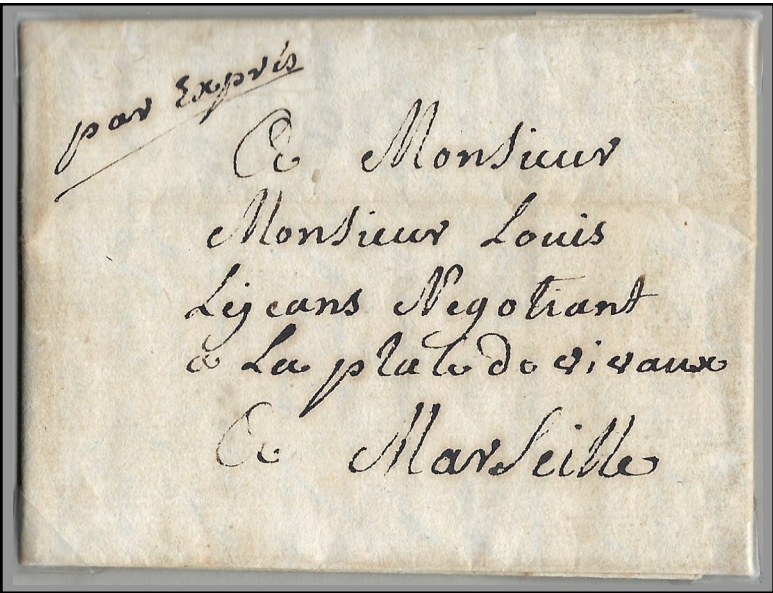 par Exprés
A Monsieur
Monsieur Louis
Lejeans Negotiant
a La place de vivaux
A Marseille